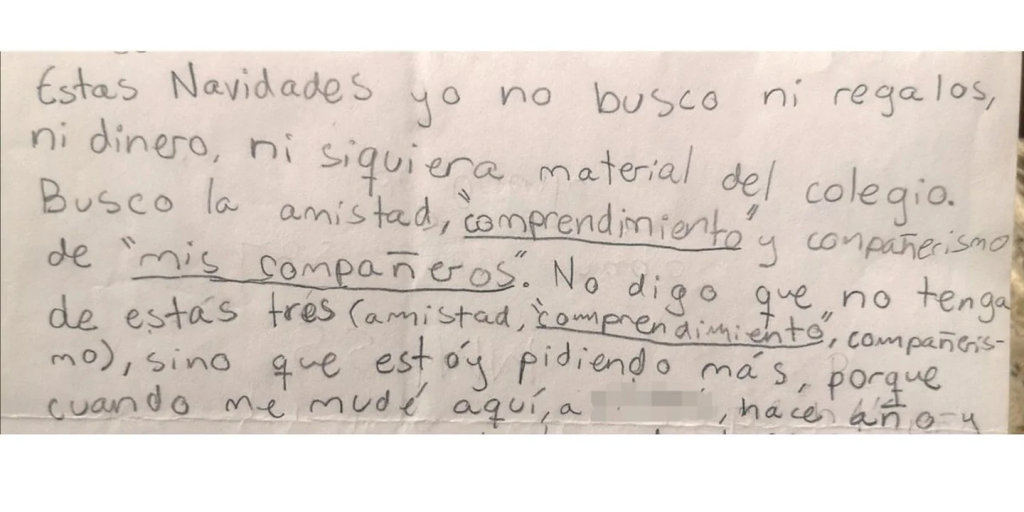 Estas Navidades yo no busco ni regalos,
ni dinero, ni siquiera material del colegio.
Busco la amistad, "comprendimiento" y compañerismo
de "mis compañeros". No digo que no tenga
de estás trés (amistad, "comprendimiento", compañeris-
mo), sino que estóy pidiendo más, porque
cuando me mudé aquí, a , hacen año y